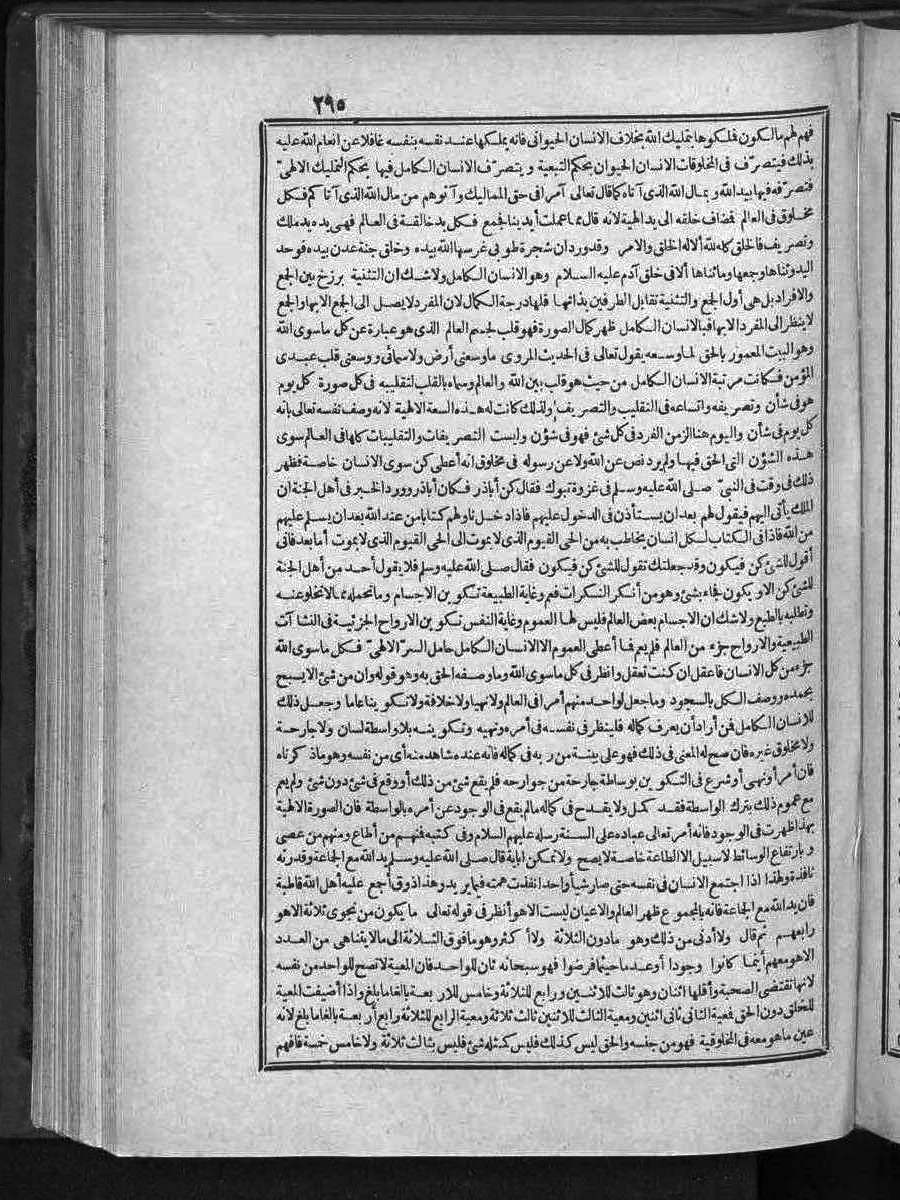 ٢٩٥
فهم لهم مالكون فملكوها بتمليك الله بخلاف الانسان الحيوانى فانه يملكها عند نفسه بنفسه غافلا عن انعام الله عليه
بذلك فيتصرّف فى المخلوقات الانسان الحيوان بحكم التبعية ويتصرّف الانسان الكامل فيها بحكم التمليك الالهىّ
فتصرّفه فيها بيد الله وبمال الله الذى آتاه كما قال تعالى آمرا فى حق المماليك وآتوهم من مال الله الذى آتاكم فكل
مخلوق فى العالم فمضاف خلقه الى يد الهية لانه قال مما عملت أيدينا فجمع فكل يد خالقة فى العالم فهى يده يد ملك
وتصريف فالخلق كله لله ألا له الخلق والامر وقد ورد ان شجرة طوبى غرسها الله بيده وخلق جنة عدن بيده فوحد
اليد وثناها وجمعها وما ثناها الا فى خلق آدم عليه السلام وهو الانسان الكامل ولا شك ان التثنية برزخ بين الجمع
والافراد بل هى أول الجمع والتثنية تقابل الطرفين بذاتها فلها درجة الكمال لان المفرد لا يصل الى الجمع الا بها والجمع
لا ينظر الى المفرد الا بها فبالانسان الكامل ظهر كمال الصورة فهو قلب لجسم العالم الذى هو عبارة عن كل ما سوى الله
وهو البيت المعمور بالحق لما وسعه يقول تعالى فى الحديث المروى ما وسعنى أرض ولا سمائى ووسعنى قلب عبدى
المؤمن فكانت مرتبة الانسان الكامل من حيث هو قلب بين الله والعالم وسماه بالقلب لتقليبه فى كل صورة كل يوم
هو فى شأن وتصريفه واتساعه فى التقليب والتصريف ولذلك كانت له هذه السعة الالهية لانه وصف نفسه تعالى بانه
كل يوم فى شأن واليوم هنا الزمن الفرد فى كل شئ فهو فى شؤن وليست التصريفات والتقليبات كلها فى العالم سوى
هذه الشؤن التى الحق فيها ولم يرد نص عن الله ولا عن رسوله فى مخلوق انه أعطى كن سوى الانسان خاصة فظهر
ذلك فى وقت فى النبىّ صلى الله عليه وسلم فى غزوة تبوك فقال كن أباذر فكان أباذر وورد الخبر فى أهل الجنة ان
الملك يأتى اليهم فيقول لهم بعد ان يستأذن فى الدخول عليهم فاذا دخل ناولهم كتابا من عند الله بعد ان يسلم عليهم
من الله فاذا فى الكتاب لكل انسان يخاطب به من الحى القيوم الذى لا يموت الى الحى القيوم الذى لا يموت أما بعد فانى
أقول للشئ كن فيكون وقد جعلتك تقول للشئ كن فيكون فقال صلى الله عليه وسلم فلا يقول أحد من أهل الجنة
للشئ كن الا ويكون فجاء بشئ وهو من أنكر النكرات فعم وغاية الطبيعة تكوين الاجسام وما تحمله مما لا تخلو عنه
وتطلبه بالطبع ولا شك ان الاجسام بعض العالم فليس لها العموم وغاية النفس تكوين الارواح الجزئية فى النشآت
الطبيعية والارواح جزء من العالم فلم يعم فما أعطى العموم الا الانسان الكامل حامل السرّ الالهىّ فكل ما سوى الله
جزء من كل الانسان فاعقل ان كنت تعقل وانظر فى كل ما سوى الله وما وصفه الحق به وهو قوله وان من شئ الا يسبح
بحمده ووصف الكل بالسجود وما جعل لواحد منهم أمرا فى العالم ولا نهيا ولا خلافة ولا تكوينا عاما وجعل ذلك
للانسان الكامل فمن أراد أن يعرف كماله فلينظر فى نفسه فى أمره ونهيه وتكوينه بلا واسطة لسان ولا جارحة
ولا مخلوق غيره فان صح له المعنى فى ذلك فهو على بينة من ربه فى كماله فانه عنده شاهد منه أى من نفسه وهو ما ذكرناه
فان أمر أو نهى أو شرع فى التكوين بوساطة جارحة من جوارحه فلم يقع شئ من ذلك أو وقع فى شئ دون شئ ولم يعم
مع عموم ذلك بترك الواسطة فقد كمل ولا يقدح فى كماله ما لم يقع فى الوجود عن أمره بالواسطة فان الصورة الالهية
بهذا ظهرت فى الوجود فانه أمر تعالى عباده على السنة رسله عليهم السلام وفى كتبه فمنهم من أطاع ومنهم من عصى
وبارتفاع الوسائط لا سبيل الا الطاعة خاصة لا يصح ولا تمكن اباية قال صلى الله عليه وسلم يد الله مع الجماعة وقدرته
نافذة ولهذا اذا اجتمع الانسان فى نفسه حتى صار شيأ واحدا نفذت همته فيما يريد وهذا ذوق أجمع عليه أهل الله قاطبة
فان يد الله مع الجماعة فانه بالمجموع ظهر العالم والاعيان ليست الا هو أنظر فى قوله تعالى ما يكون من نجوى ثلاثة الا هو
رابعهم ثم قال ولا أدنى من ذلك وهو مادون الثلاثة ولا أكثر وهو ما فوق الثلاثة الى مالا يتناهى من العدد
الا هو معهم أينما كانوا وجودا أو عدما حيثما فرضوا فهو سبحانه ثان للواحد فان المعية لا تصح للواحد من نفسه
لانها تقتضى الصحبة وأقلها اثنان وهو ثالث للاثنين ورابع للثلاثة وخامس للاربعة بالغا ما بلغ واذا أضيفت المعية
للخلق دون الحق فمعية الثانى ثانى اثنين ومعية الثالث للاثنين ثالث ثلاثة ومعية الرابع للثلاثة رابع أربعة بالغا ما بلغ لانه
عين ما هو معه فى المخلوقية فهو من جنسه والحق ليس كذلك فليس كمثله شئ فليس بثالث ثلاثة ولا خامس خمسة فافهم